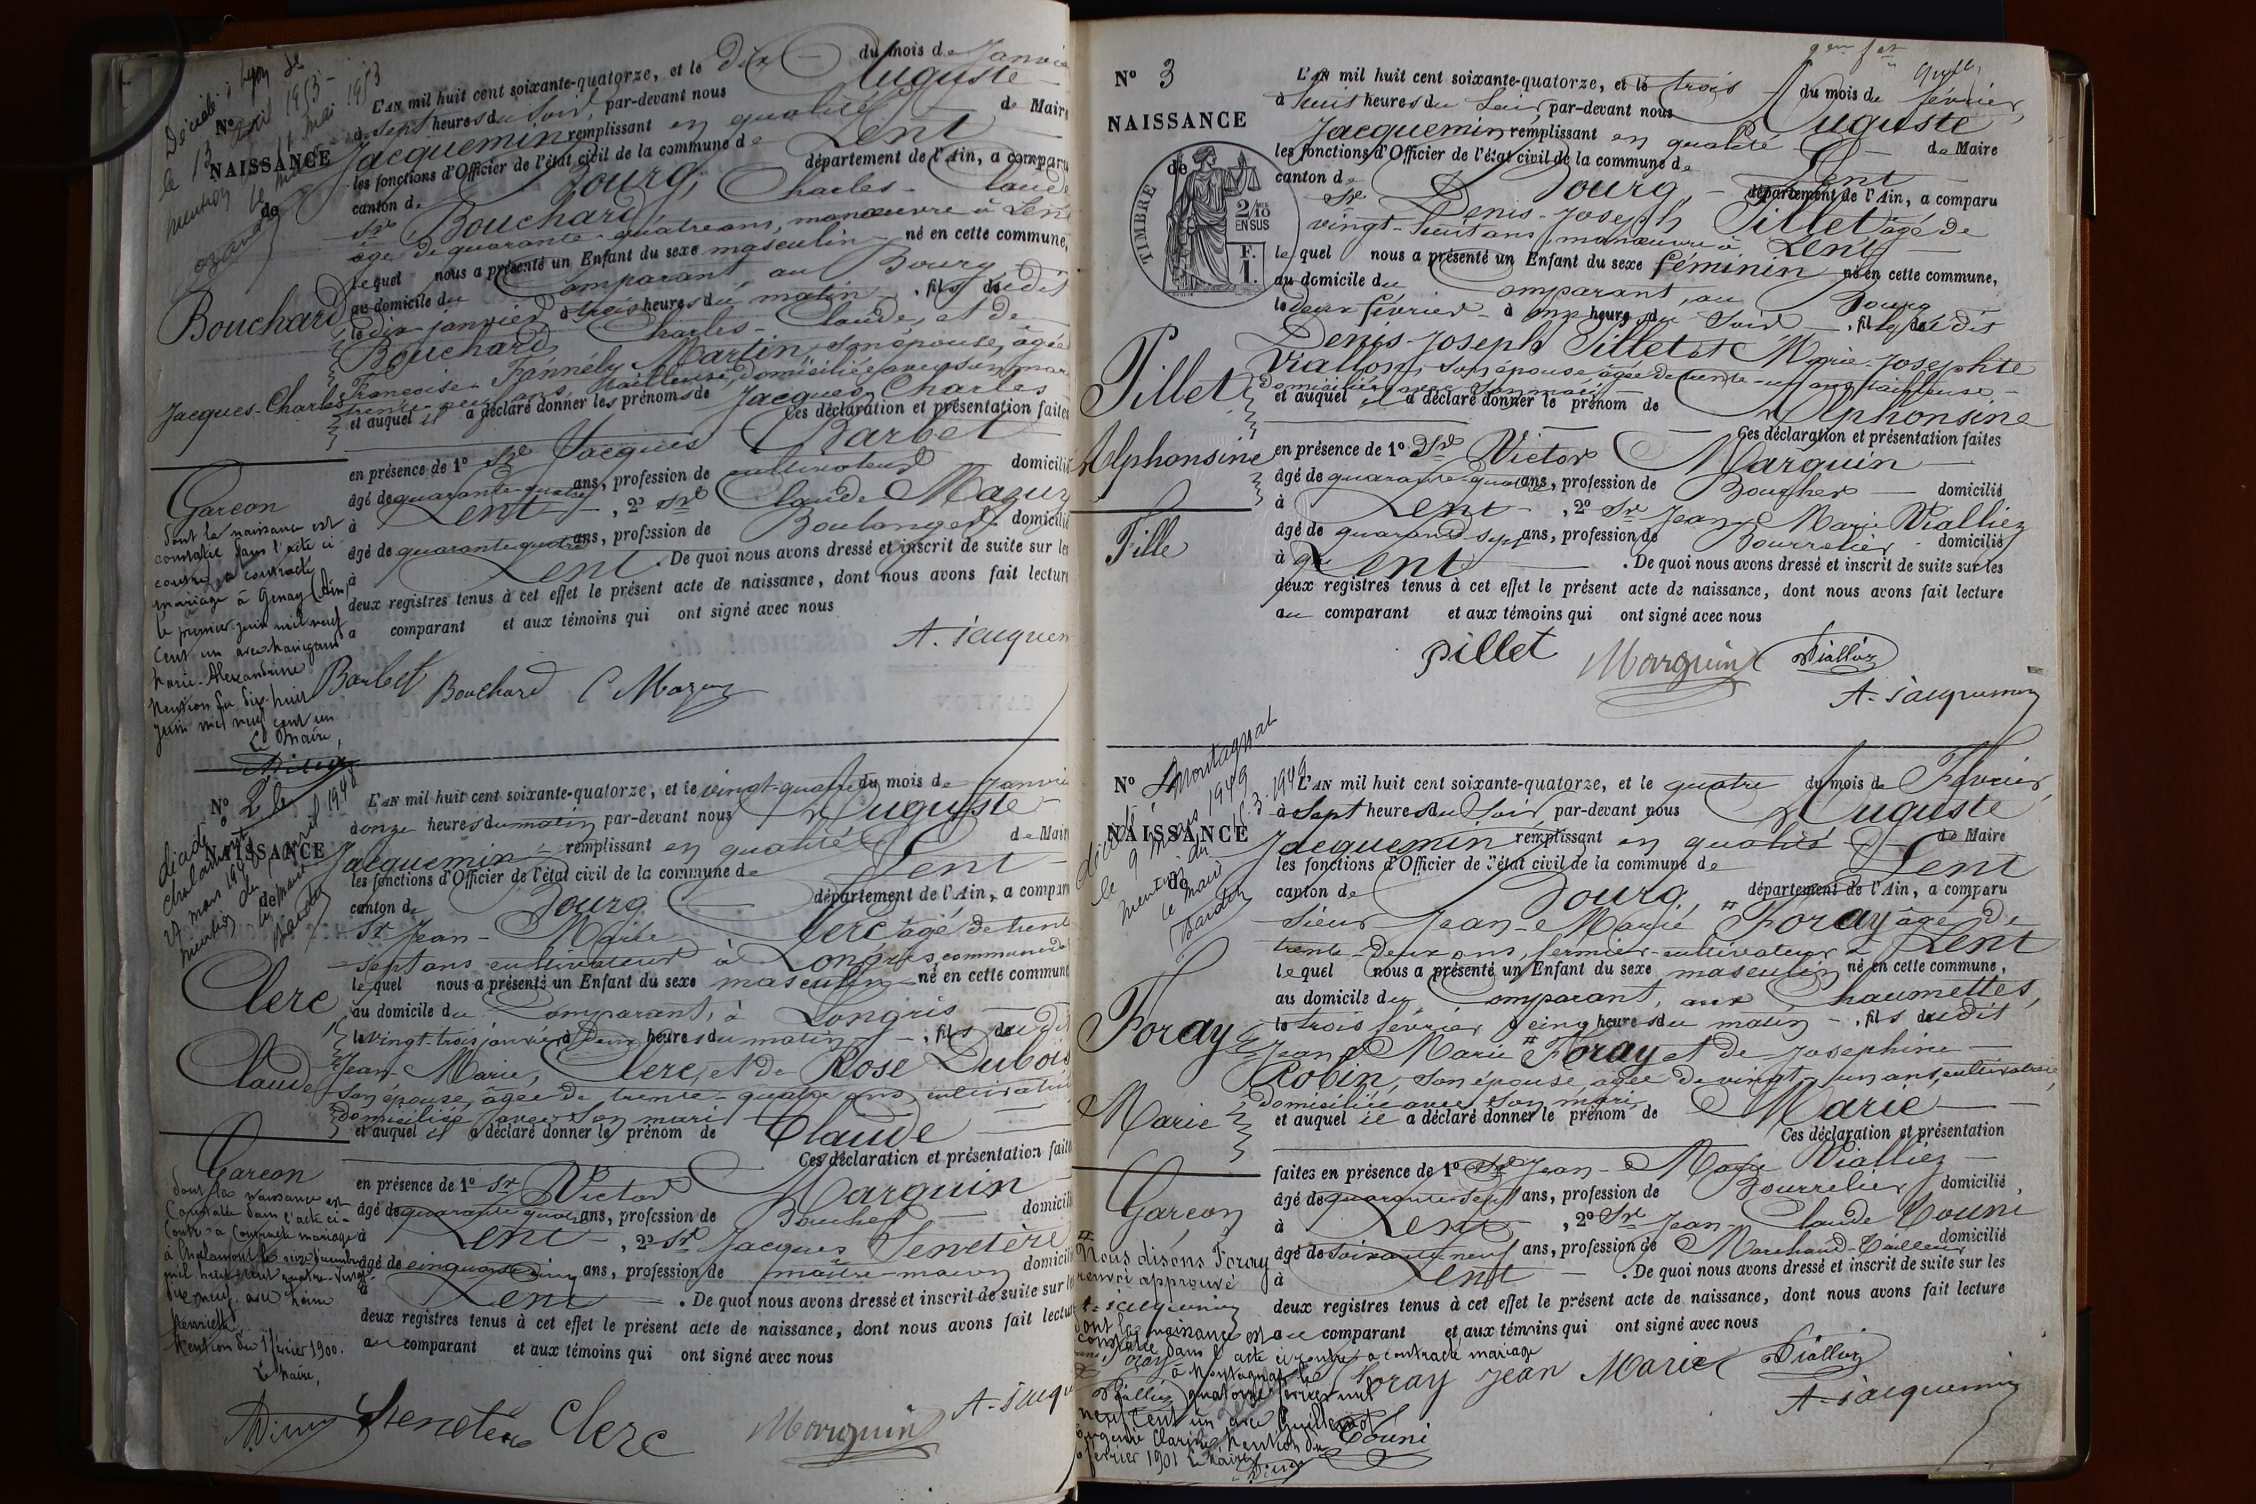 Décédé à Lyon le
le 13 avril 1953
mention le 17 mai 1953
Nº
NAISSANCE
de
L'AN mil huit cent soixante-quatorze, et le dix du mois de Janvie
à sept heures du soir, par-devant nous Auguste
Jacquemin remplissant en qualité de Maire
les fonctions d'Officier de l'état civil de la commune de Lent
canton de Bourg, département de l'Ain, a comparu
Sr Bouchard, Charles-Claude
âgé de quarante-quatre ans, manœuvre à Lent
lequel nous a présenté un Enfant du sexe masculin né en cette commune,
au domicile du Comparant au Bourg
le dix janvier à trois heures du matin, fils dudit
Bouchard Charles-Claude, et de
Françoise-Fannély Martin, son épouse, âgée
trente-neuf ans, tailleuse, domiciliée avec son mari
et auquel il a déclaré donner les prénoms de Jacques Charles
Bouchard
Jacques-Charles
Ces déclaration et présentation faites
en présence de 1º Sr Jacques Barbet
âgé de quarante-quatre ans, profession de cultivateur domicilié
à Lent, 2º Sr Claude Mazuy
âgé de quarante-quatre ans, profession de Boulanger domicilié
à Lent. De quoi nous avons dressé et inscrit de suite sur les
deux registres tenus à cet effet le présent acte de naissance, dont nous avons fait lecture
a comparant et aux témoins qui ont signé avec nous
Garçon
dont la naissance est
constatée dans l'acte ci
contre a contracté
mariage à Genay (Ain)
le premier juin mil neuf
cent un avec
Marie-Alexandrine
Mention du dix-huit
juin mil neuf cent un
Le Maire,
A. Jacquem
Barbet Bouchard C Mazuy
Nº 2
NAISSANCE
de
décédé à
Chalamont
27 mars 1948
mention du avril 1948
le maire
L'AN mil huit cent soixante-quatorze, et le vingt-quatre du mois de Janvie
à onze heures du matin par-devant nous Auguste
Jacquemin remplissant en qualité de Maire
les fonctions d'Officier de l'état civil de la commune de Lent
canton de Bourg département de l'Ain, a comparu
Sr Jean-Marie Clerc âgé de trente
sept ans cultivateur à Longris, commune de
lequel nous a présenté un Enfant du sexe masculin né en cette commune
au domicile du Comparant, à Longris
le vingt-trois janvier à deux heures du matin, fils dudit
Jean-Marie, Clerc, et de Rose Dubois
son épouse, âgée de trente-quatre ans cultivatrice
domiciliée avec son mari
et auquel il a déclaré donner le prénom de Claude
Clerc
Claude
Ces déclaration et présentation faites
en présence de 1º Sr Victor Marguin
âgé de quarante quatre ans, profession de Boucher domicilié
à Lent, 2º Sr Jacques Senetère
âgé de cinquante cinq ans, profession de maître-maçon domicilié
à Lent. De quoi nous avons dressé et inscrit de suite sur les
deux registres tenus à cet effet le présent acte de naissance, dont nous avons fait lecture
au comparant et aux témoins qui ont signé avec nous
Garçon
dont la naissance est
constatée dans l'acte ci-
contre a contracté mariage
à Chalamont le
mil huit cent quatre-vingt
dix neuf avec
Henriette
Mention du 1900.
Le Maire,
Senetère Clerc Marguin A-Jacqu
Nº 3
NAISSANCE
de
TIMBRE
2/10 EN SUS
F. 1.
L'AN mil huit cent soixante-quatorze, et le trois du mois de février,
à huit heures du soir, par-devant nous Auguste
Jacquemin remplissant en qualité de Maire
les fonctions d'Officier de l'état civil de la commune de Lent
canton de Bourg, département de l'Ain, a comparu
Sr Denis-Joseph Pillet âgé de
vingt-huit ans, manœuvre à Lent
lequel nous a présenté un Enfant du sexe féminin né en cette commune,
au domicile du Comparant, au Bourg
le deux février à onze heures du soir, fille dudit
Denis-Joseph Pillet et Marie-Josephte
Viallon, son épouse âgée de trente-un ans, tailleuse
domiciliée avec son mari
et auquel il a déclaré donner le prénom de Alphonsine
Pillet
Alphonsine
Ces déclaration et présentation faites
en présence de 1º Sr Victor Marguin
âgé de quarante-quatre ans, profession de Boucher domicilié
à Lent, 2º Sr Jean Marie Vialliez
âgé de quarante-sept ans, profession de Bourrelier domicilié
à Lent. De quoi nous avons dressé et inscrit de suite sur les
deux registres tenus à cet effet le présent acte de naissance, dont nous avons fait lecture
au comparant et aux témoins qui ont signé avec nous
Fille
Pillet Marguin Vialliez
A-Jacquemin
Nº 4
NAISSANCE
de
décédé à Montagnat
le 9 mars 1949
mention du 16.3.1949
le maire
L'AN mil huit cent soixante-quatorze, et le quatre du mois de Février,
à Sept heures du Soir, par-devant nous Auguste
Jacquemin remplissant en qualité de Maire
les fonctions d'Officier de l'état civil de la commune de Lent
canton de Bourg, département de l'Ain, a comparu
Sieur Jean-Marie Foray âgé de
trente-deux ans, fermier-cultivateur à Lent
lequel nous a présenté un Enfant du sexe masculin né en cette commune,
au domicile du Comparant, aux Chaumettes,
le trois février à cinq heures du matin, fils dudit
Jean Marie Foray et de Josephine
Robin, son épouse, âgée de vingt-un ans, cultivatrice,
domiciliée avec son mari,
et auquel il a déclaré donner le prénom de Marie
Foray
Marie
Ces déclaration et présentation
faites en présence de 1º Sr Jean-Marie Vialliez
âgé de quarante-sept ans, profession de Bourrelier domicilié
à Lent, 2º Sr Jean-Claude Couni
âgé de soixante-neuf ans, profession de Marchand-Tailleur domicilié
à Lent. De quoi nous avons dressé et inscrit de suite sur les
deux registres tenus à cet effet le présent acte de naissance, dont nous avons fait lecture
au comparant et aux témoins qui ont signé avec nous
Garçon
Nous disons Foray
renvoi approuvé
A-Jacquemin
dont la naissance est
constatée dans l'acte ci contre a contracté mariage
à Montagnat le
quatorze février mil
neuf cent un avec Guillemot
Clarisse Mention du
février 1901 Le Maire
Foray Jean Marie Vialliez
A-Jacquemin
Couni